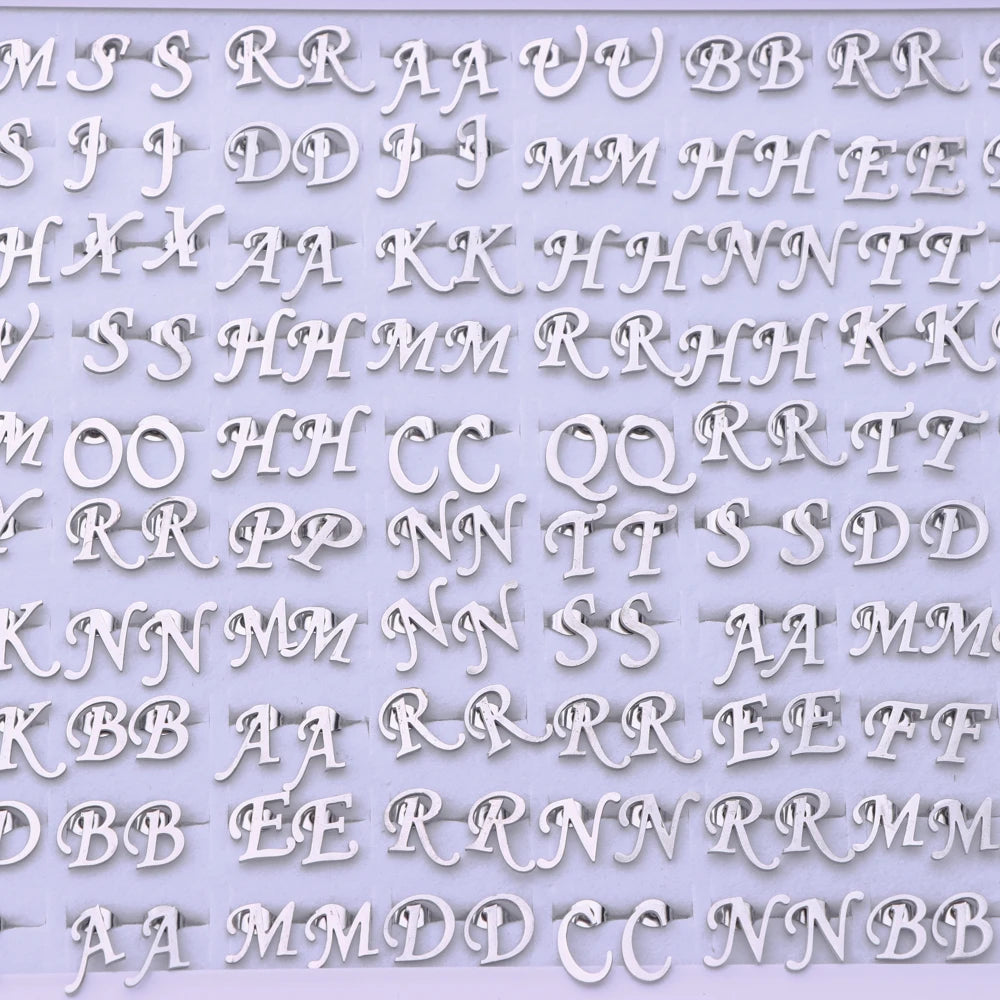 M S S R R A A U U B B R R
S J J D D J J M M H H E E
H X X A A K K H H N N T T
V S S H H M M R R H H K K
M O O H H C C Q Q R R T T
R R P P N N T T S S D D
K N N M M N N S S A A M M
K B B A A R R R R E E F F
D B B E E R R N N R R M M
A A M M D D C C N N B B